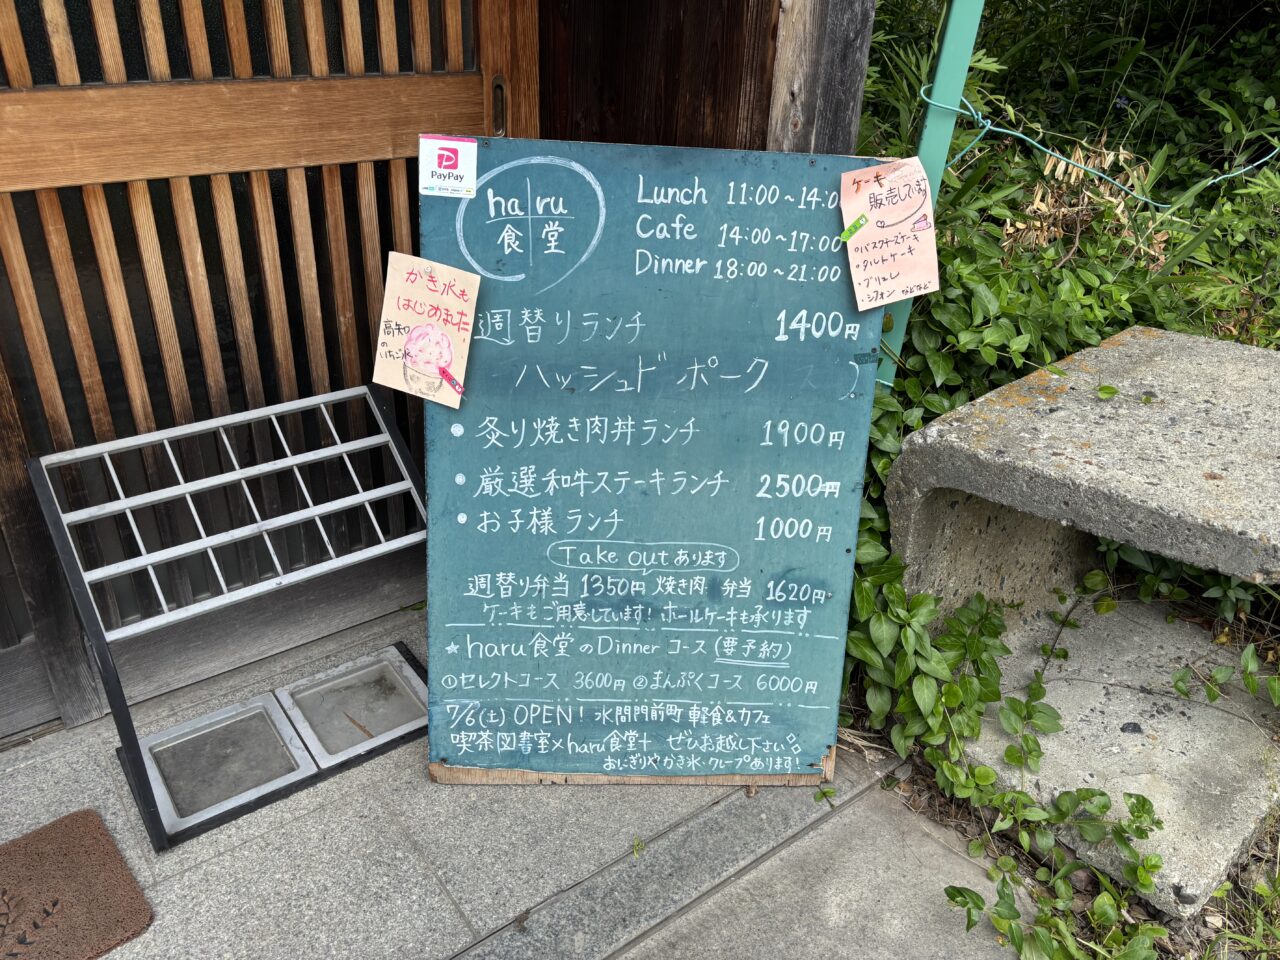 PayPay
haru
食堂
Lunch 11:00~14:0
Cafe 14:00~17:00
Dinner 18:00~21:00
ケーキ
販売しています
・バスクチーズケーキ
・タルトケーキ
・ブリュレ
・シフォン などなど
かき氷も
はじめました
高知の
いちご氷
週替りランチ 1400円
ハッシュドポーク
・炙り焼き肉丼ランチ 1900円
・厳選和牛ステーキランチ 2500円
・お子様ランチ 1000円
Take outあります
週替り弁当 1350円 焼き肉 弁当 1620円
ケーキもご用意しています! ホールケーキも承ります
★haru食堂のDinnerコース(要予約)
①セレクトコース 3600円 ②まんぷくコース 6000円
7/6(土) OPEN! 水間門前町 軽食&カフェ
喫茶図書室×haru食堂+ ぜひお越し下さい。
おにぎりやかき氷・クレープあります!